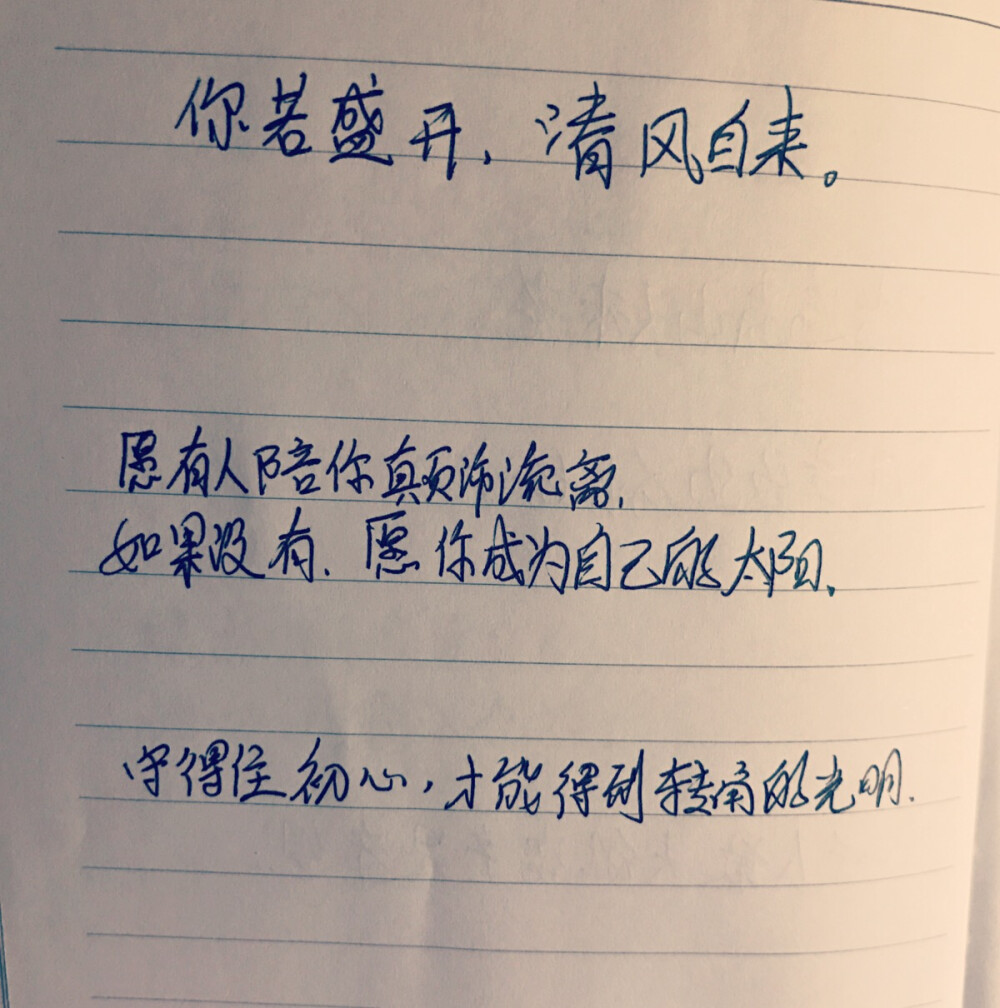 你若盛开，清风自来。
愿有人陪你颠沛流离，
如果没有，愿你成为自己的太阳。
守得住初心，才能得到转角的光明。